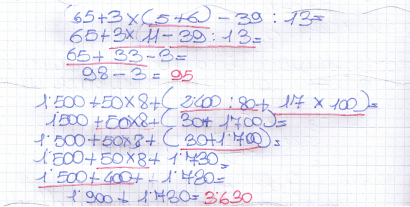 65+3×(5+6) - 39 : 13=
65+3×11-39:13=
65+ 33-3=
98-3= 95
1.500+50×8+(2400:80+17×100)=
1500+50×8+(30+1700)=
1.500+50×8+(30+1.700)=
1.500+50×8+1.730=
1.500+400+-1.730=
1.900+1.730=3.630